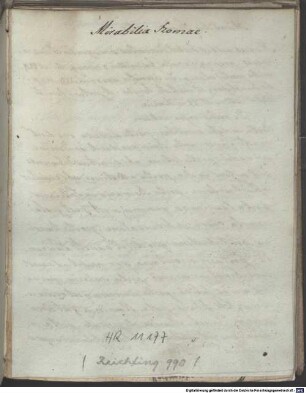 Mirabilia Romae
HR 11177
( Reichling 990 )
Digitalisierung gefördert durch die Deutsche Forschungsgemeinschaft